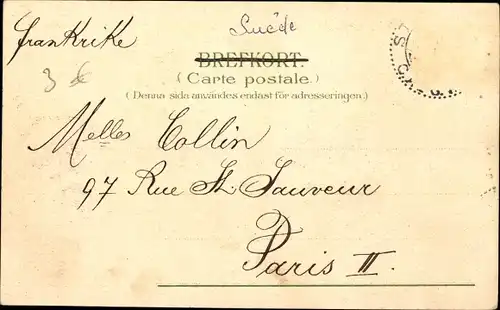 Suède
frankrike
BREFKORT.
(Carte postale.)
(Denna sida användes endast för adresseringen.)
3
Melles Collin
97 Rue St Sauveur
Paris II.